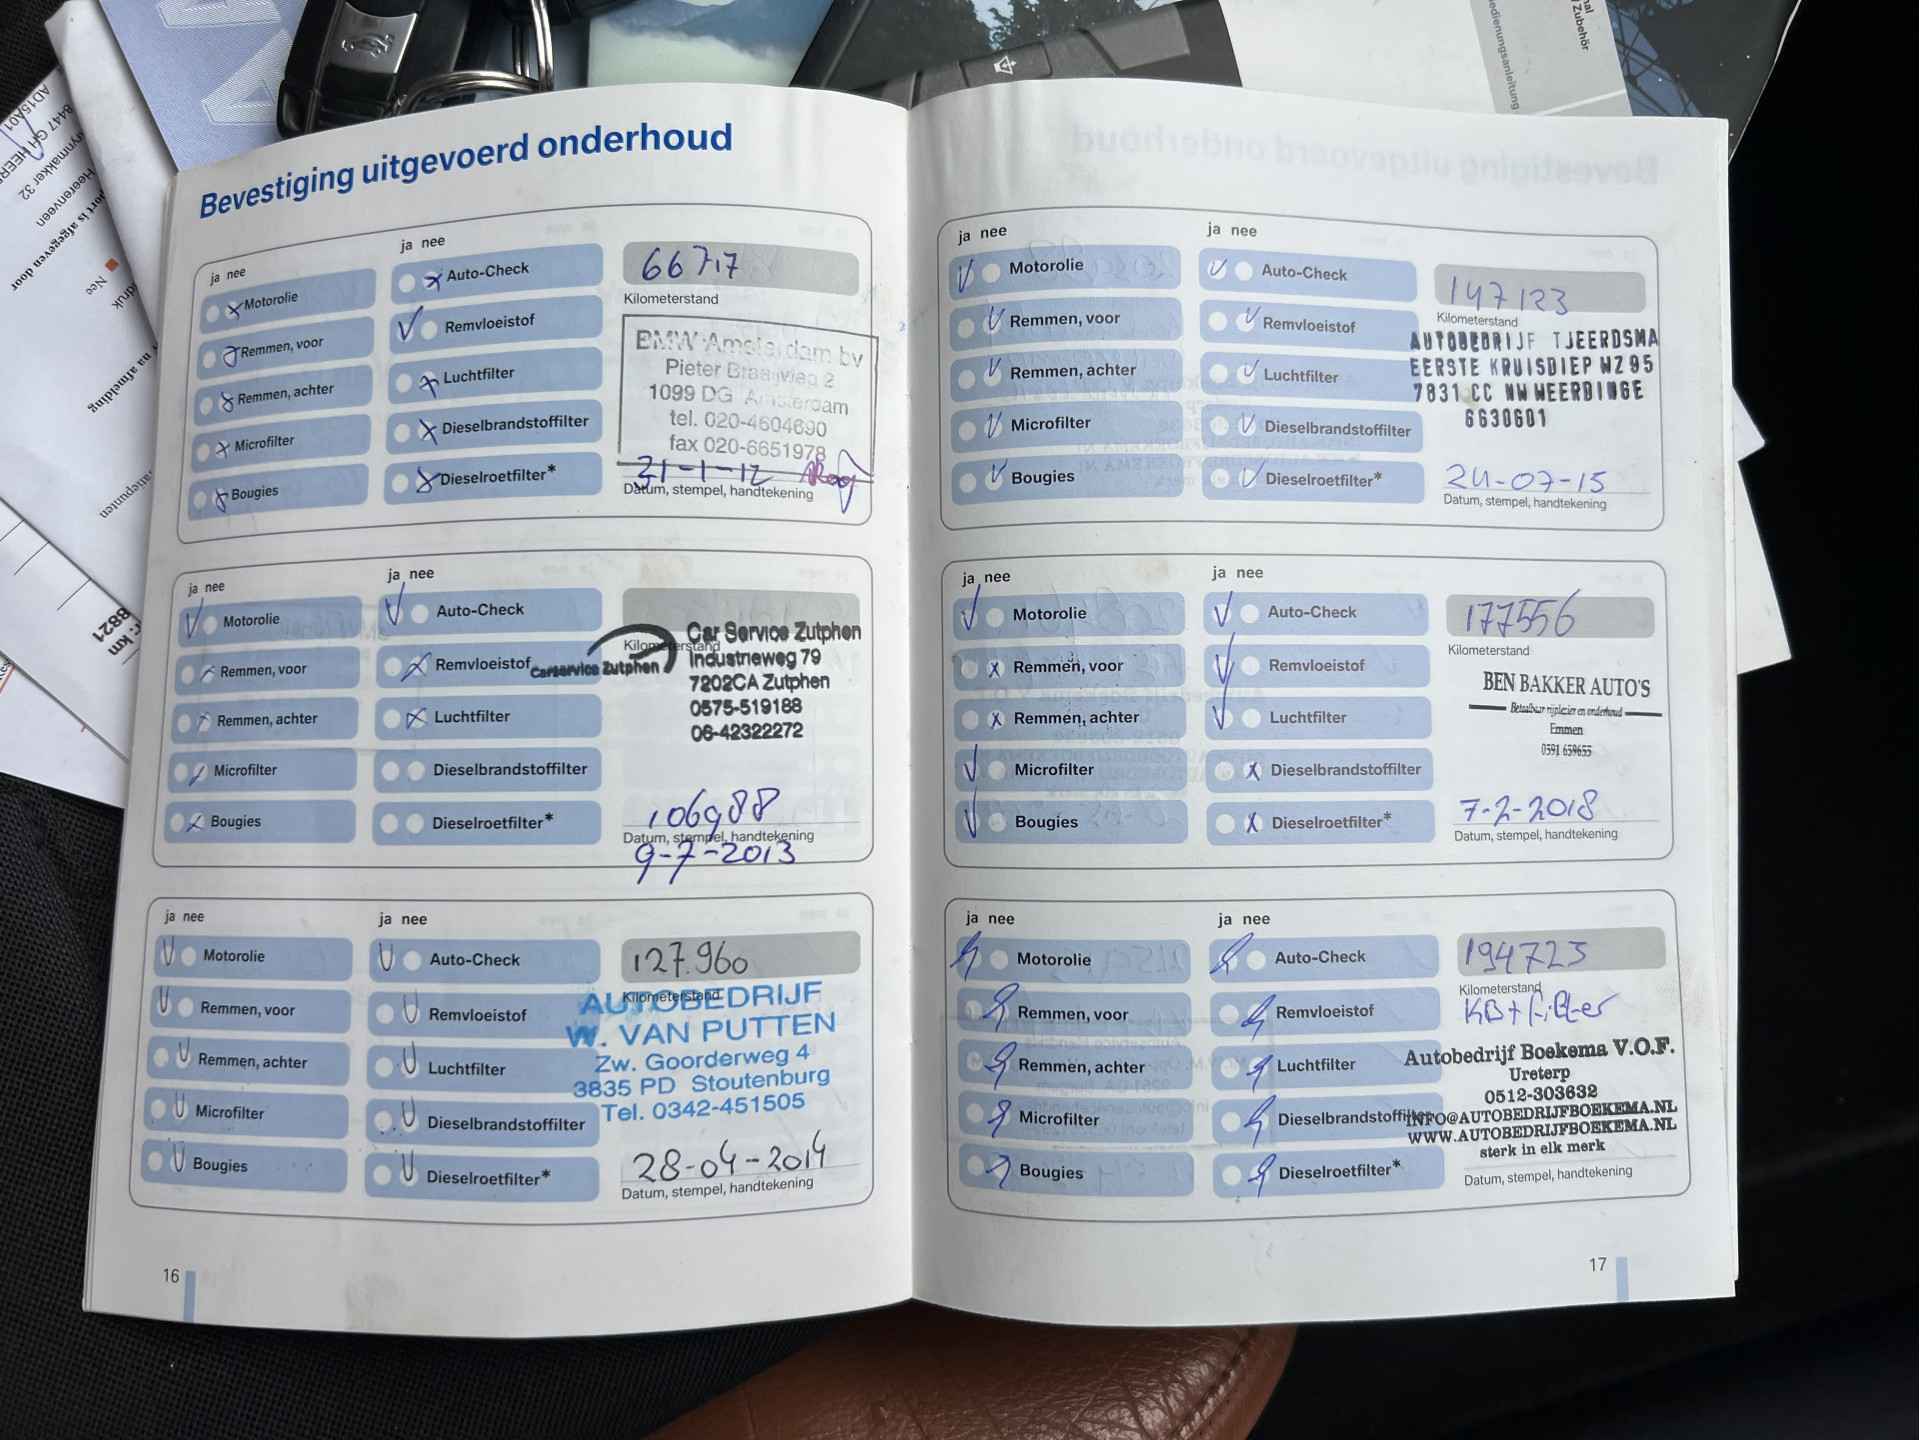 Bevestiging uitgevoerd onderhoud
ja nee
Motorolie
Remmen, voor
Remmen, achter
Microfilter
Bougies
ja nee
Auto-Check
Remvloeistof
Luchtfilter
Dieselbrandstoffilter
Dieselroetfilter*
66717
Kilometerstand
BMW Amsterdam bv
Pieter Braaijweg 2
1099 DG Amsterdam
tel. 020-4604690
fax 020-6651978
31-1-12
Datum, stempel, handtekening
ja nee
Motorolie
Remmen, voor
Remmen, achter
Microfilter
Bougies
ja nee
Auto-Check
Remvloeistof
Luchtfilter
Dieselbrandstoffilter
Dieselroetfilter*
Kilometerstand
Carservice Zutphen
Car Service Zutphen
Industrieweg 79
7202CA Zutphen
0575-519188
06-42322272
106988
Datum, stempel, handtekening
9-7-2013
ja nee
Motorolie
Remmen, voor
Remmen, achter
Microfilter
Bougies
ja nee
Auto-Check
Remvloeistof
Luchtfilter
Dieselbrandstoffilter
Dieselroetfilter*
127.960
Kilometerstand
AUTOBEDRIJF
W. VAN PUTTEN
Zw. Goorderweg 4
3835 PD Stoutenburg
Tel. 0342-451505
28-04-2014
Datum, stempel, handtekening
16
ja nee
Motorolie
Remmen, voor
Remmen, achter
Microfilter
Bougies
ja nee
Auto-Check
Remvloeistof
Luchtfilter
Dieselbrandstoffilter
Dieselroetfilter*
147123
Kilometerstand
AUTOBEDRIJF TJEERDSMA
EERSTE KRUISDIEP WZ 95
7831 CC NW WEERDINGE
6630601
24-07-15
Datum, stempel, handtekening
ja nee
Motorolie
Remmen, voor
Remmen, achter
Microfilter
Bougies
ja nee
Auto-Check
Remvloeistof
Luchtfilter
Dieselbrandstoffilter
Dieselroetfilter*
177556
Kilometerstand
BEN BAKKER AUTO'S
Betaalbaar rijplezier en onderhoud
Emmen
0591 659655
7-2-2018
Datum, stempel, handtekening
ja nee
Motorolie
Remmen, voor
Remmen, achter
Microfilter
Bougies
ja nee
Auto-Check
Remvloeistof
Luchtfilter
Dieselbrandstoffilter
Dieselroetfilter*
194723
Kilometerstand
KB+filter
Autobedrijf Boekema V.O.F.
Ureterp
0512-303632
INFO@AUTOBEDRIJFBOEKEMA.NL
WWW.AUTOBEDRIJFBOEKEMA.NL
sterk in elk merk
Datum, stempel, handtekening
17
AD15A01
8447 GH HEER
Heerenveen
port is afgegeven door
Nee
na afmelding
km
8821
Zubehör